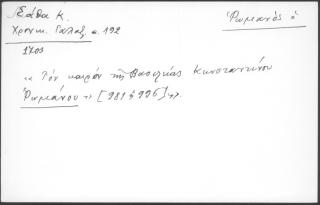 Σάθα Κ.
Χρονικ. Γαλαξ. σ. 192
Ῥωμανός ὁ
1703
« Τόν καιρόν τῆς Βασιλείας Κωνσταντίνου
Ῥωμάνου » [981 ἢ 996]».